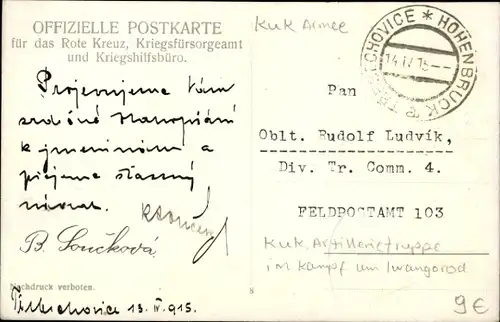 OFFIZIELLE POSTKARTE
für das Rote Kreuz, Kriegsfürsorgeamt
und Kriegshilfsbüro.
KuK Armee
HOHENBRUCK * TŘEBECHOVICE *
14 IV 15
Projevujeme Vám
srdečné
k jmeninám a
přejeme šťastný
návrat.
B. Součková
Nachdruck verboten.
8
Třebechovice 13. IV. 915.
Pan
Oblt. Rudolf Ludvík,
Div. Tr. Comm. 4.
FELDPOSTAMT 103
KuK Artillerietruppe
im Kampf um Iwangorod
9€